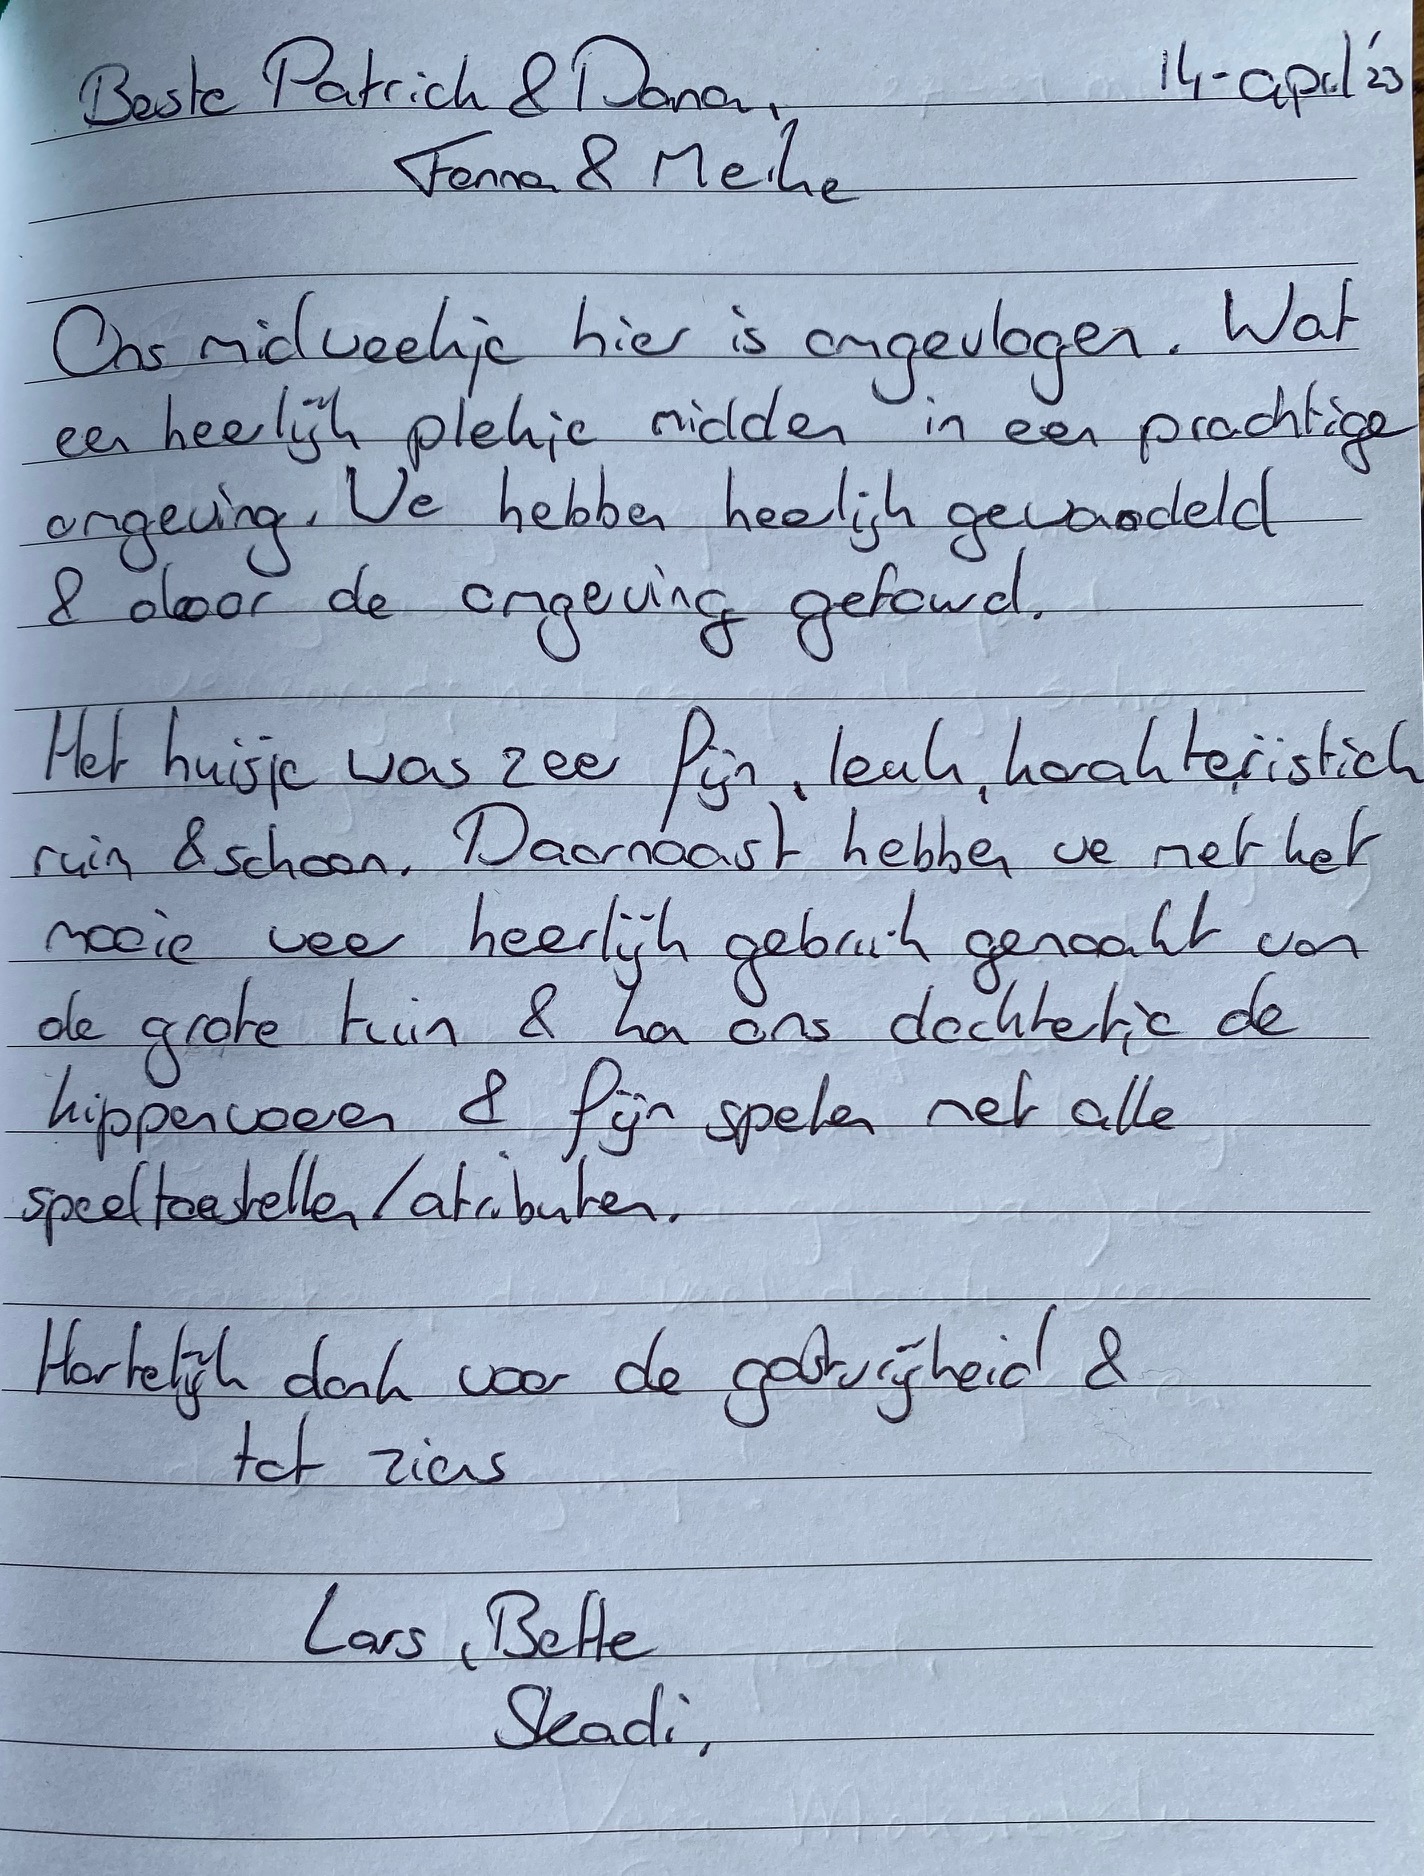 Beste Patrick & Dana, 14-april '23
Fenna & Meike
Ons midweekje hier is omgevlogen. Wat
een heerlijk plekje midden in een prachtige
omgeving. We hebben heerlijk gewandeld
& door de omgeving getourd.
Het huisje was zeer fijn, leuk, karakteristiek
ruim & schoon. Daarnaast hebben we met het
mooie weer heerlijk gebruik gemaakt van
de grote tuin & kon ons dochtertje de
kippen voeren & fijn spelen met alle
speeltoestellen/atributen.
Hartelijk dank voor de gastvrijheid &
tot ziens
Lars, Bette
Skadi,